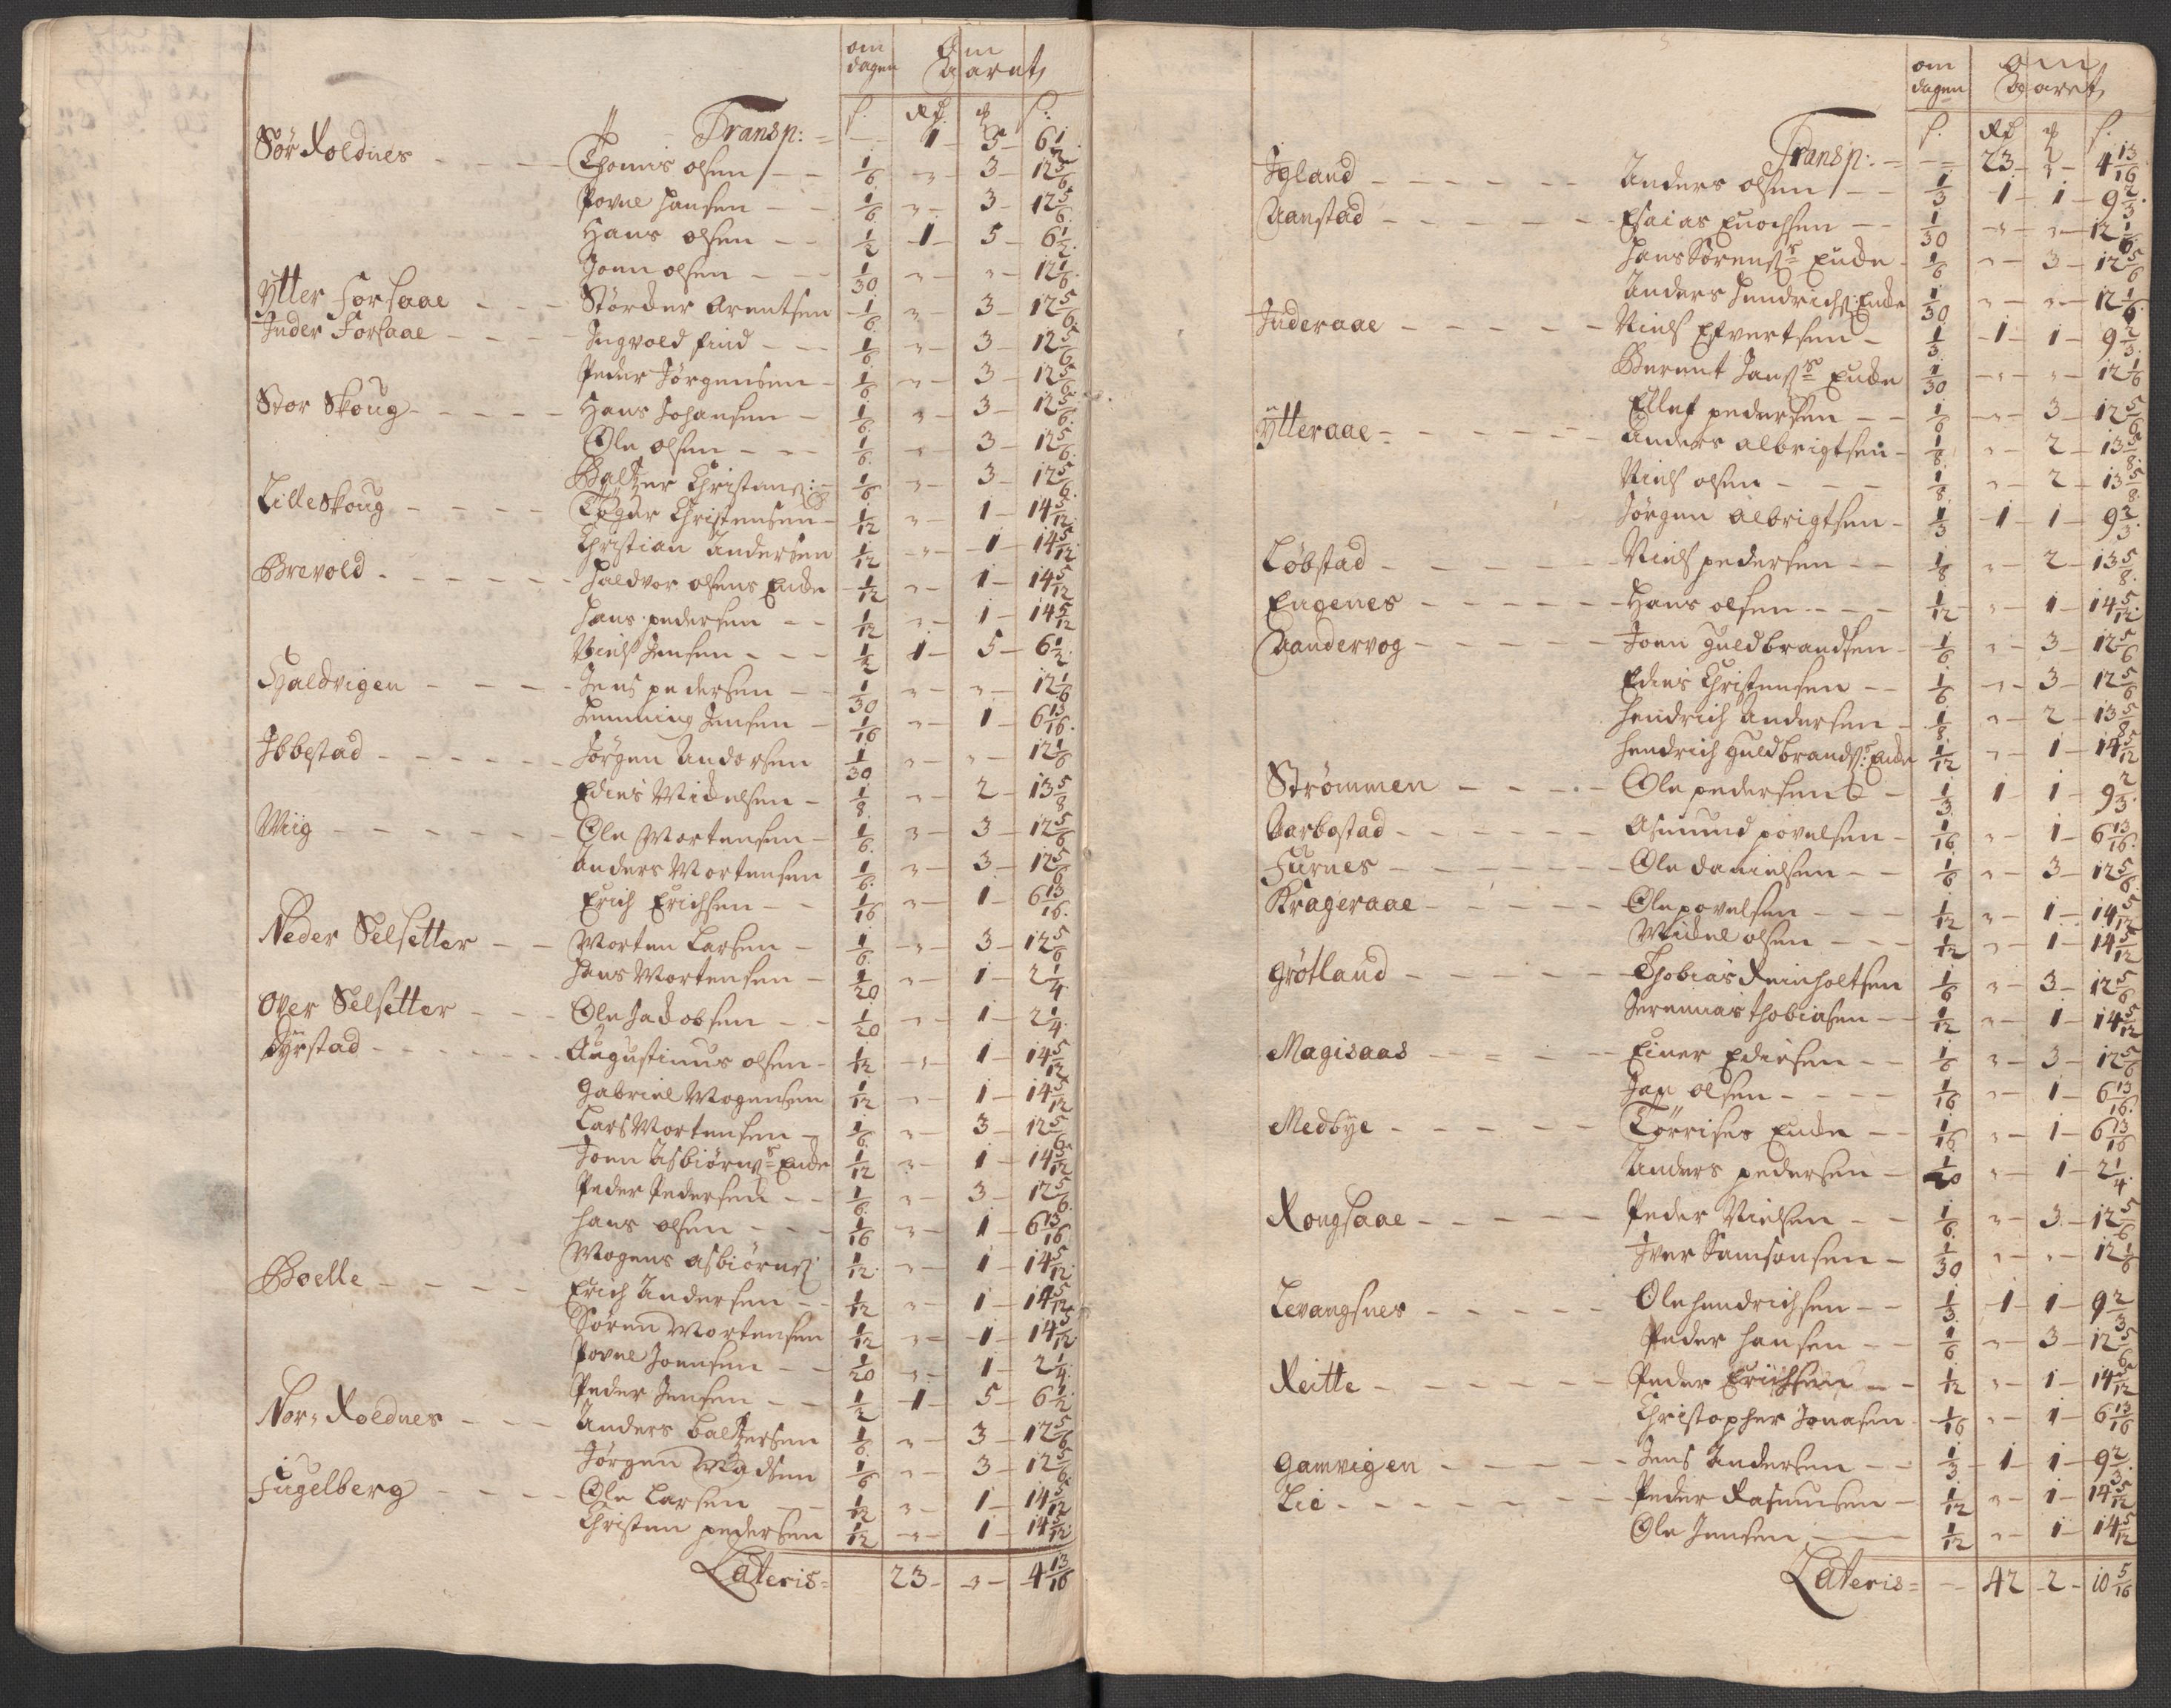 om dagen Om Aaret
s. Rd. ß s.
Transp: = — 1 — 5 — 6 1/2
Sör Roldnes — Thomis olsen — 1/6 — " — 3 — 12 5/6
Povel Hansen — 1/6 — " — 3 — 12 5/6
Hans olsen — 1/2 — 1 — 5 — 6 1/2
Joen olsen — 1/30 — " — " — 12 1/6
Ytter Forsaae — Störcker Arentsen — 1/6 — " — 3 — 12 5/6
Inder Forsaae — Ingvold find — 1/6 — " — 3 — 12 5/6
Peder Jörgensen — 1/6 — " — 3 — 12 5/6
Stor Skoug — Hans Johansen — 1/6 — " — 3 — 12 5/6
Ole olsen — 1/6 — " — 3 — 12 5/6
Baltzer Christens: — 1/6 — " — 3 — 12 5/6
Lille Skoug — Töger Christensen — 1/12 — " — 1 — 14 5/12
Christian Andersen 1/12 — " — 1 — 14 5/12
Brevold — Haldvor olsens Encke — 1/12 — " — 1 — 14 5/12
Hans pedersen — 1/12 — " — 1 — 14 5/12
Niels Jensen — 1/2 — 1 — 5 — 6 1/2
Hialdvigen — Jens pedersen — 1/30 — " — " — 12 1/6
Hemming Jensen — 1/16 — " — 1 — 6 13/16
Ibbestad — Jörgen Andersen 1/30 — " — " — 12 1/6
Edies Mickelsen — 1/8 — " — 2 — 13 5/8
Wiig — Ole Mortensen — 1/6 — " — 3 — 12 5/6
Anders Mortensen 1/6 — " — 3 — 12 5/6
Erich Erichsen — 1/16 — " — 1 — 6 13/16
Neder Selsetter — Morten Larsen — 1/6 — " — 3 — 12 5/6
Hans Mortensen — 1/20 — " — 1 — 2 1/4
Over Selsetter — Ole Jacobsen — 1/20 — " — 1 — 2 1/4
Dyrstad — Augustinus olsen — 1/12 — " — 1 — 14 5/12
Gabriel Mogensen 1/12 — " — 1 — 14 5/12
Lars Mortensen — 1/6 — " — 3 — 12 5/6
Joen Asbiörns: Encke 1/12 — " — 1 — 14 5/12
Peder Pedersen — 1/6 — " — 3 — 12 5/6
Hans olsen — 1/16 — " — 1 — 6 13/16
Mogens asbiörns: 1/12 — " — 1 — 14 5/12
Bolle — Erich Andersen — 1/12 — " — 1 — 14 5/12
Sören Mortensen 1/12 — " — 1 — 14 5/12
Povel Joensen — 1/20 — " — 1 — 2 1/4
Peder Jensen — 1/2 — 1 — 5 — 6 1/2
Nor, Roldnes — Anders baltzersen 1/6 — " — 3 — 12 5/6
Jörgen Madsen 1/6 — " — 3 — 12 5/6
Fugelberg — Ole Larsen 1/12 — " — 1 — 14 5/12
Christen pedersen 1/12 — " — 1 — 14 5/12
Lateris = 23 — " — 4 13/16
om dagen Om Aaret
s. Rd ß s.
Transp: = — 23 — " — 4 13/16
Igland — Anders olsen — 1/3 — 1 — 1 — 9 2/3
Aanstad — Esaias Enochsen — 1/30 — " — " — 12 1/6
Hans Sörens: Encke — 1/6 — " — 3 — 12 5/6
Anders Hendrichs: Encke 1/30 — " — " — 12 1/6
Inderaae — Niels Efvertsen — 1/3 — 1 — 1 — 9 2/3
Berent Jans: Encke 1/30 — " — " — 12 1/6
Ellef pedersen — 1/6 — " — 3 — 12 5/6
Ytteraae — Anders albrigtsen — 1/8 — " — 2 — 13 5/8
Niels olsen — 1/8 — " — 2 — 13 5/8
Jörgen albrigtsen — 1/3 — 1 — 1 — 9 2/3
Löbstad — Niels pedersen — 1/8 — " — 2 — 13 5/8
Engenes — Hans olsen — 1/12 — " — 1 — 14 5/12
Aandervog — Joen Guldbrandsen — 1/6 — " — 3 — 12 5/6
Edies Christensen — 1/6 — " — 3 — 12 5/6
Hendrich Andersen — 1/8 — " — 2 — 13 5/8
Hendrich Guldbrands: Encke 1/12 — " — 1 — 14 5/12
Strömmen — Ole pedersen — 1/3 — 1 — 1 — 9 2/3
Aarbostad — Asmund povelsen — 1/16 — " — 1 — 6 13/16
Furnes — Ole danielsen — 1/6 — " — 3 — 12 5/6
Krageraae — Ole povelsen — 1/12 — " — 1 — 14 5/12
Mickel olsen — 1/12 — " — 1 — 14 5/12
Grötland — Thobias Reinholtsen 1/6 — " — 3 — 12 5/6
Jeremias Thobiasen — 1/12 — " — 1 — 14 5/12
Magisaas — Einer Ediesen — 1/6 — " — 3 — 12 5/6
Jap olsen — 1/16 — " — 1 — 6 13/16
Medbye — Törrises Encke — 1/16 — " — 1 — 6 13/16
Anders pedersen — 1/20 — " — 1 — 2 1/4
Rougsaae — Peder Nielsen — 1/6 — " — 3 — 12 5/6
Iver Samsonsen — 1/30 — " — " — 12 1/6
Levangsnes — Ole Hendrichsen — 1/3 — 1 — 1 — 9 2/3
Peder Hansen — 1/6 — " — 3 — 12 5/6
Reitte — Peder Erichsen — 1/12 — " — 1 — 14 5/12
Christopher Jonasen 1/16 — " — 1 — 6 13/16
Gamvigen — Jens Andersen — 1/3 — 1 — 1 — 9 2/3
Lie — Peder Rasmusen — 1/12 — " — 1 — 14 5/12
Ole Jensen — 1/12 — " — 1 — 14 5/12
Lateris = — 42 — 2 — 10 5/16